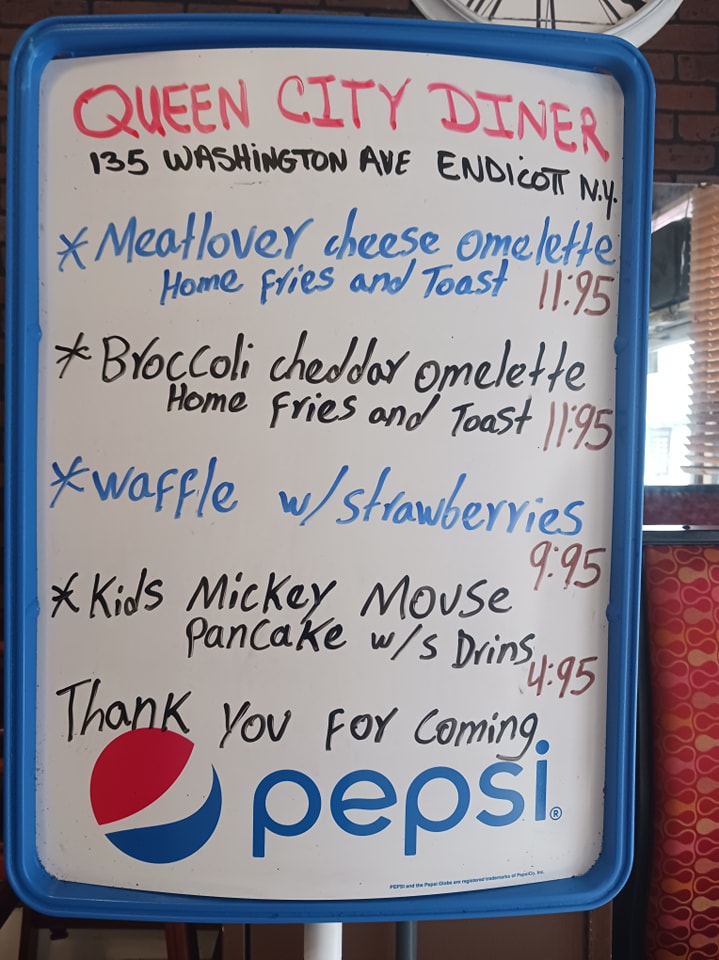 QUEEN CITY DINER
135 WASHINGTON AVE ENDICOTT N.Y.
* Meatlover cheese omelette
Home fries and Toast 11:95
* Broccoli cheddar omelette
Home fries and Toast 11:95
* waffle w/strawberries
9:95
* Kids Mickey Mouse
Pancake w/s Drins
4:95
Thank You For Coming
pepsi®
PEPSI and the Pepsi Globe are registered trademarks of PepsiCo, Inc.